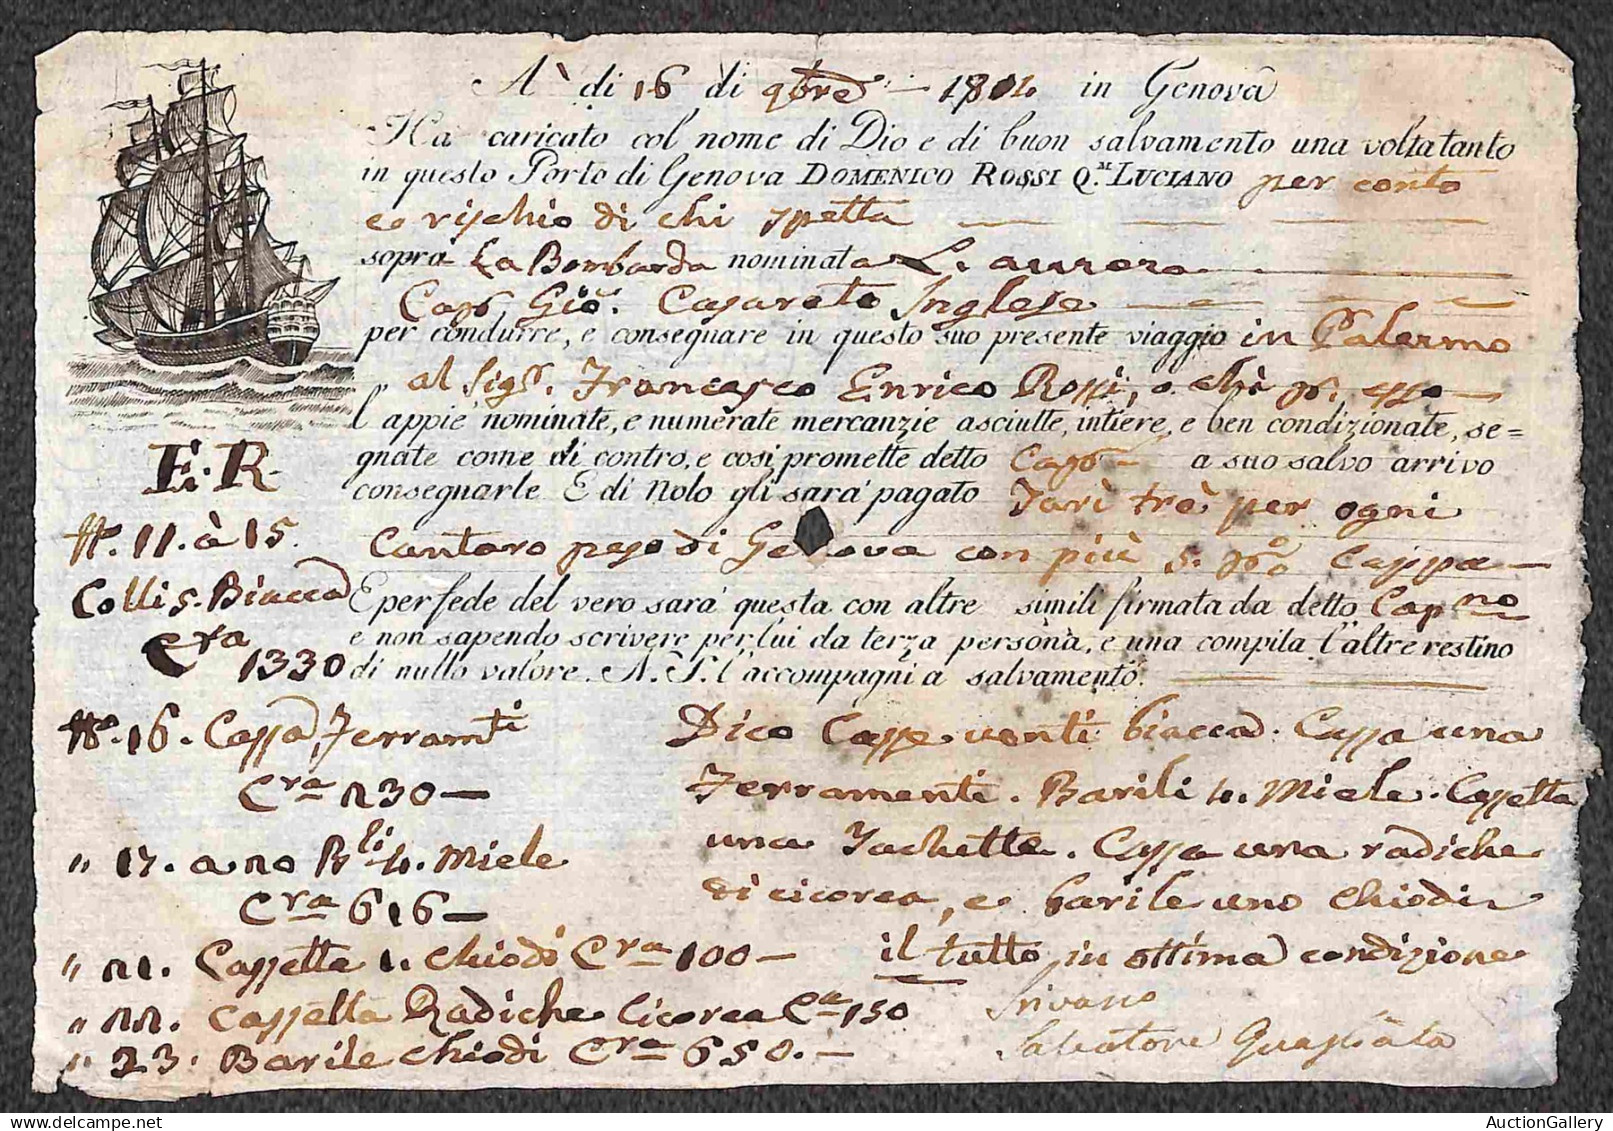 A di 16 di 9bre 1804 in Genova
Ha caricato col nome di Dio e di buon salvamento una volta tanto
in questo Porto di Genova DOMENICO ROSSI Q.M LUCIANO per conto
e rischio di chi spetta
sopra La Bombarda nominata L. aurora
Cap. Gio. Casareto Inglese
per condurre, e consegnare in questo suo presente viaggio in Palermo
al Sigr. Francesco Enrico Rossi, o chi p. esso
l'appiè nominate, e numerate mercanzie asciutte, intiere, e ben condizionate, se=
gnate come di contro, e così promette detto Cap. a suo salvo arrivo
consegnarle E di Nolo gli sarà pagato Tarì trè per ogni
Cantaro peso di Genova con più 5. p. Cappa
E per fede del vero sarà questa con altre simili firmata da detto Capno
e non sapendo scrivere per lui da terza persona, e una compita l'altre restino
di nullo valore. N. S. l'accompagni a salvamento.
E. R.
N. 11. à 15.
Colli 5. Biacca
Cra 1330
N. 16. Cassa Ferramti
Cra 230
" 17. a 20 Bli 4. Miele
Cra 616
" 21. Cassetta 1. Chiodi Cra 100
" 22. Cassetta Radiche Cicorea Ca 150
" 23. Barile Chiodi Cra 650.
Dico Casse venti biacca. Cassa una
Ferramenti. Barili 4. Miele. Cassetta
una Tachette. Cassa una radiche
di cicorea, e barile uno Chiodi
il tutto in ottima condizione
Scrivano
Salvatore Quagliata
AuctionGallery